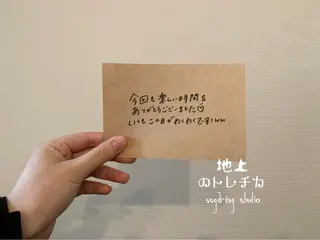 今回も楽しい時間を
ありがとうございました
いつもこの日がわくわくですｗｗ
地上
のトレチカ
sugaring studio